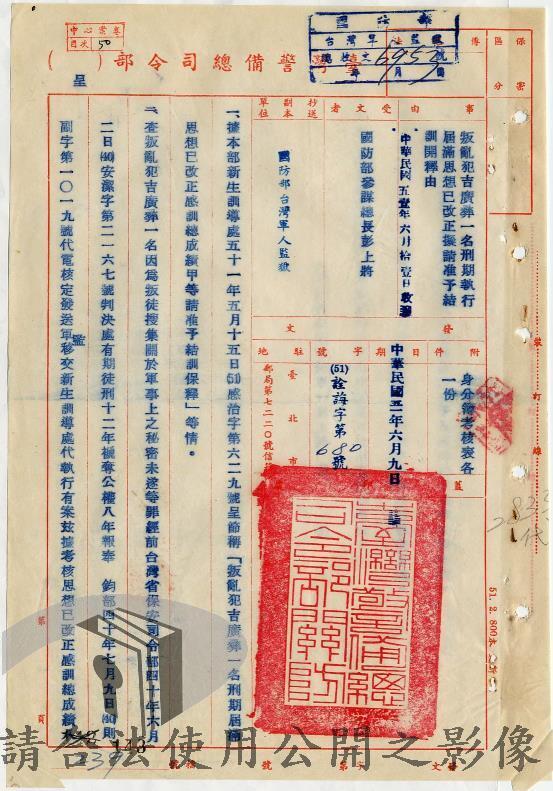 中心案卷
目次 50
國防部
台灣軍人監獄
6952
號
保密
區分
傳
警備總司令部( )
呈
事由
叛亂犯吉廣舜一名刑期執行
屆滿思想已改正擬請准予結
訓開釋由
中華民國五壹年六月拾壹日收
受文者
國防部參謀總長彭上將
抄送
副本
單位
國防部台灣軍人監獄
附件
身分簿考核表各
一份
發文
日期
中華民國五一年六月九日
字號
(51)詮誨字第680號
駐地
臺北市
郵局第七二二〇號信箱
蓋
臺灣警備總司令部關防
一、據本部新生訓導處五十一年五月十五日(51)感治字第六二九號呈節稱「叛亂犯吉廣舜一名刑期屆滿
思想已改正感訓總成績甲等請准予結訓保釋」等情。
二、查叛亂犯吉廣舜一名因為叛徒搜集關於軍事上之秘密未遂等罪經前台灣省保安司令部四十年六月
二日(40)安潔字第二一六七號判決處有期徒刑十二年褫奪公權八年報奉 鈞部四十年七月九日(40)則
副字第一〇一九號代電核定發送軍監移交新生訓導處代執行有案玆據考核思想已改正感訓總成績
裝
訂
線
51. 2. 800本
第
頁
148
239
號
字第
文
請合法使用公開之影像